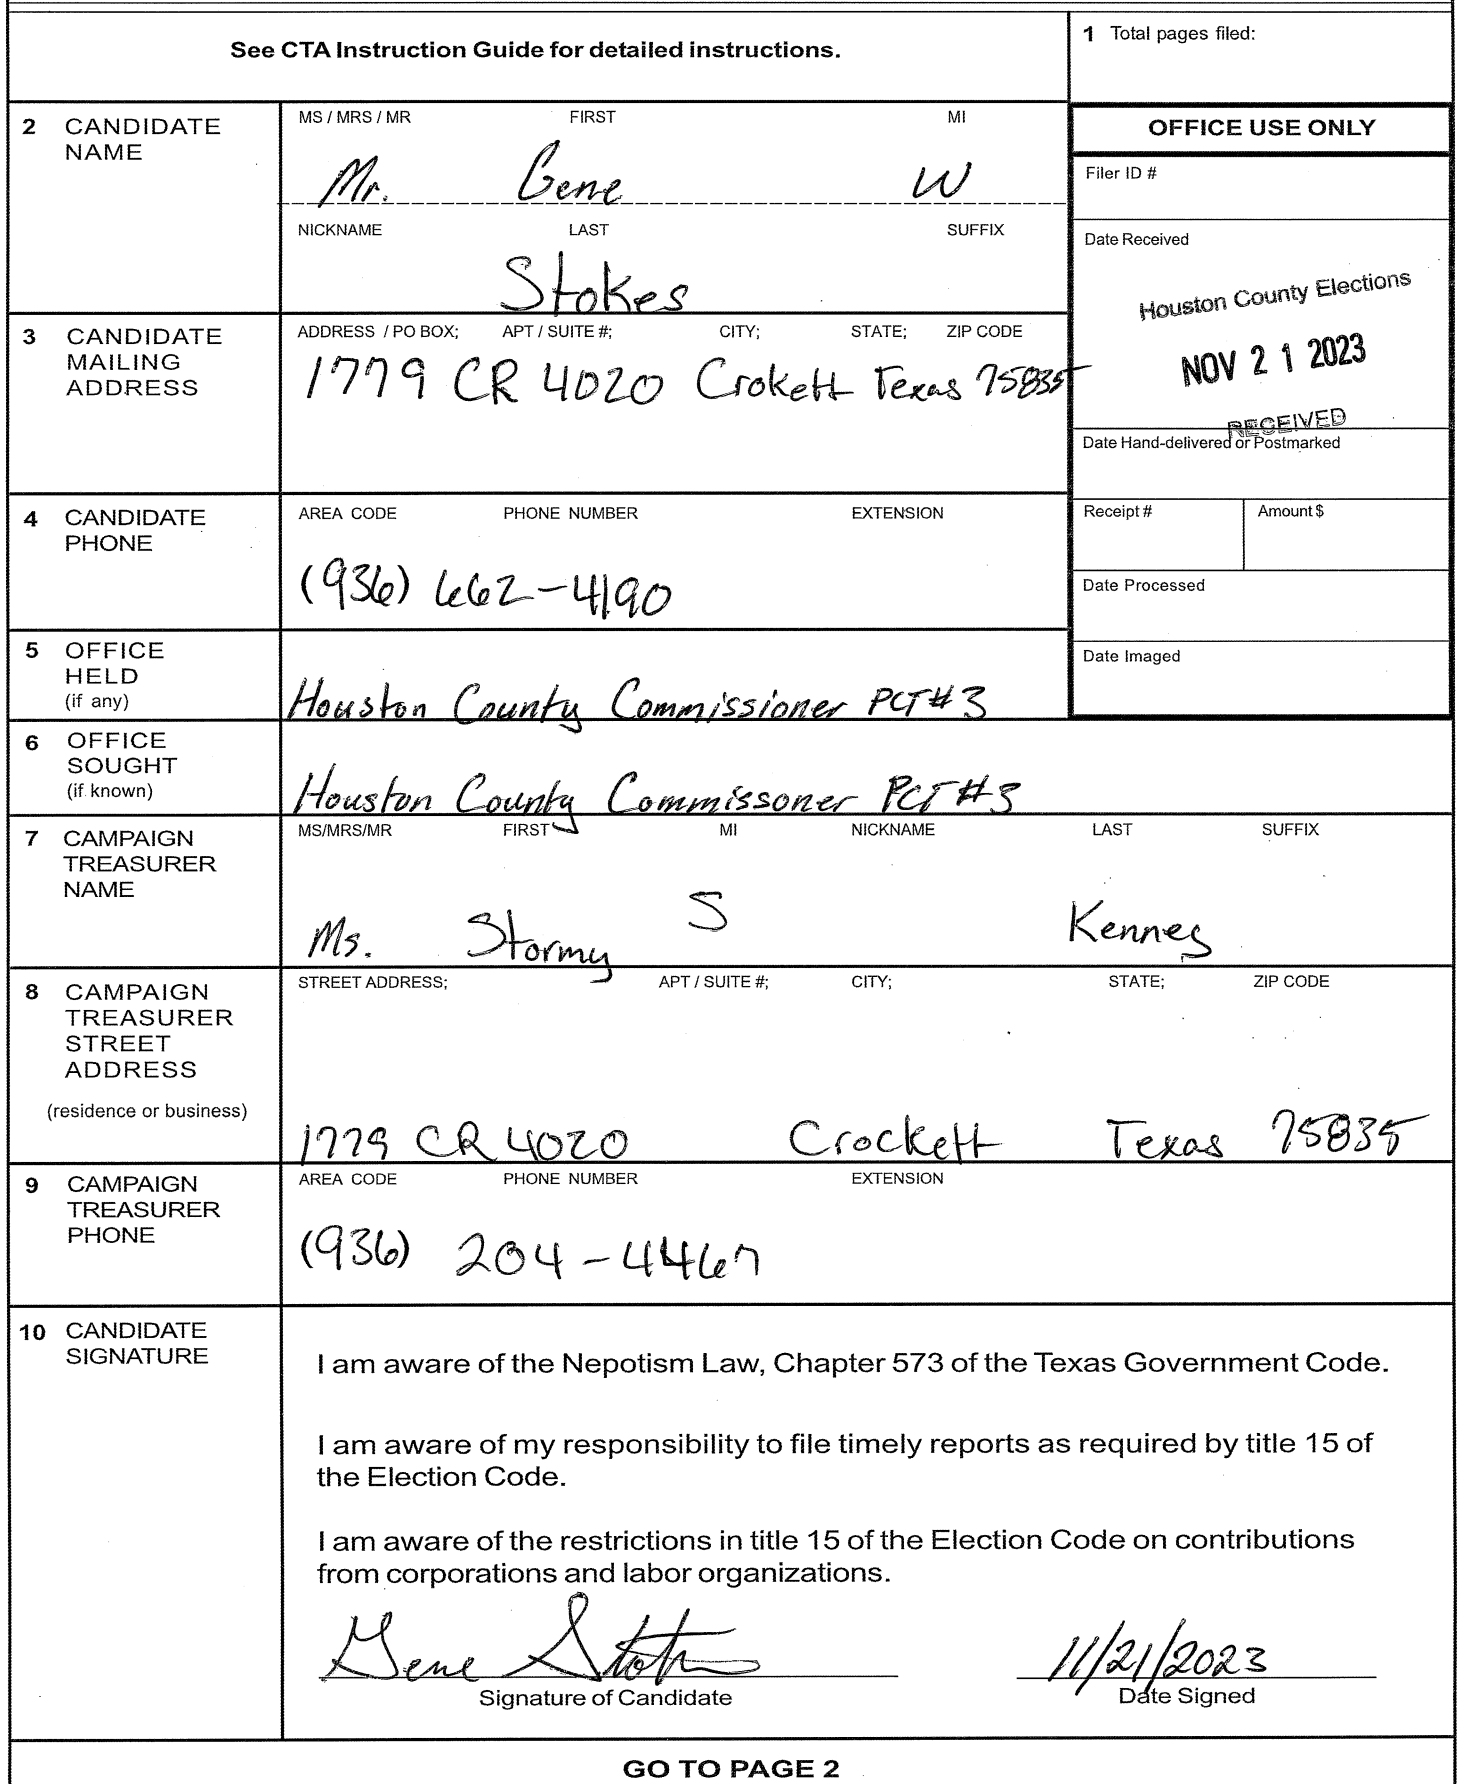 See CTA Instruction Guide for detailed instructions.
1 Total pages filed:
2 CANDIDATE NAME
MS / MRS / MR FIRST MI
Mr. Gene W
NICKNAME LAST SUFFIX
Stokes
OFFICE USE ONLY
Filer ID #
Date Received
Houston County Elections
NOV 2 1 2023
RECEIVED
Date Hand-delivered or Postmarked
Receipt # Amount $
Date Processed
Date Imaged
3 CANDIDATE MAILING ADDRESS
ADDRESS / PO BOX; APT / SUITE #; CITY; STATE; ZIP CODE
1779 CR 4020 Crokett Texas 75835
4 CANDIDATE PHONE
AREA CODE PHONE NUMBER EXTENSION
(936) 662-4190
5 OFFICE HELD (if any)
Houston County Commissioner PCT# 3
6 OFFICE SOUGHT (if known)
Houston County Commissoner PCT #3
7 CAMPAIGN TREASURER NAME
MS/MRS/MR FIRST MI NICKNAME LAST SUFFIX
Ms. Stormy S Kenney
8 CAMPAIGN TREASURER STREET ADDRESS
(residence or business)
STREET ADDRESS; APT / SUITE #; CITY; STATE; ZIP CODE
1779 CR 4020 Crockett Texas 75835
9 CAMPAIGN TREASURER PHONE
AREA CODE PHONE NUMBER EXTENSION
(936) 204-4467
10 CANDIDATE SIGNATURE
I am aware of the Nepotism Law, Chapter 573 of the Texas Government Code.
I am aware of my responsibility to file timely reports as required by title 15 of
the Election Code.
I am aware of the restrictions in title 15 of the Election Code on contributions
from corporations and labor organizations.
Gene Stokes 11/21/2023
Signature of Candidate Date Signed
GO TO PAGE 2